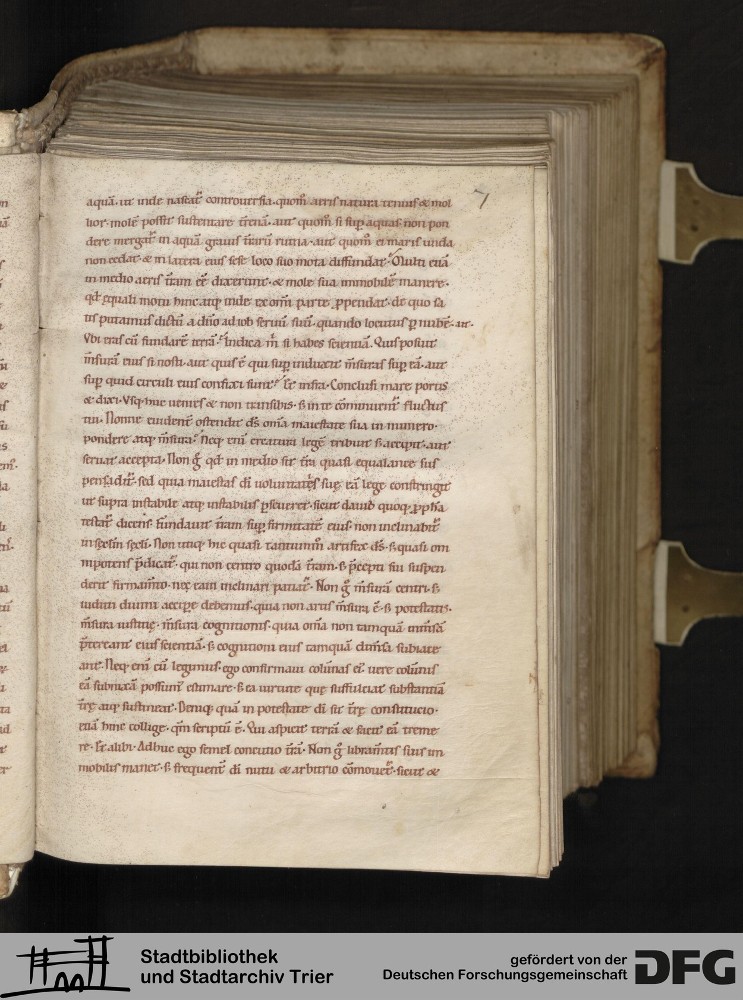 7
aquā. ut inde nascat᷒ controuersia. quom̄ aeris natura tenuis & mol
lior. molē possit sustentare t̄renā. aut quom̄ si sup̄ aquas. non pon
dere mergat᷒ in aquā grauis t̄rarū ruina. aut quom̄ ei maris unda
non cedat. & in latera eius sese loco suo mota diffundat. Multi etiā
in medio aeris t̄ram eē dixerunt. & mole sua immobilē manere.
qd̄ equali motu hinc atq; inde ex om̄i parte p̱pendat. de quo sa
tis putamus dictū a dn̄o ad iob seruū suū. quando locutus ē p̱ nubē. ait.
Vbi eras cū fundarē terrā? Indica m̄ si habes scientiā. Quis posuit
m̄surā eius si nosti. aut quis ē qui sup̄ induxit m̄suras sup̄ eā. aut
sup̄ quid circuli eius confixi sunt? Et infra. Conclusi mare portis
& dixi. Vsq; huc uenies & non transibis. s; in te cōminuent᷒ fluctus
tui. Nonne euident̄ ostendit ds̄ om̄a maiestate sua in numero.
pondere atq; m̄sura? Neq; enī creatura legē tribuit s; accepit. aut
seruat acceptā. Non g̊ qd̄ in medio sit t̄ra quasi equalance sus
pensa dicit᷒. sed quia maiestas dī uoluntatis suę eā lege constringit
ut supra instabile atq; instabilis p̱seueret. sicut dauid quoq; p̱pħa
testat᷒ dicens. Fundauit t̄ram sup̄ firmitatē eius. non inclinabit᷒
in sc̄lm sc̄li. Non utiq; hic quasi tantummō artifex ds̄. s; quasi om
nipotens p̄dicat᷒. qui non centro quodā t̄ram. s; p̄cepti sui suspen
derit firmam̄to. nec eam inclinari patiat᷒. Non g̊ m̄surā centri. s;
iudicii diuini accip̱e debemus. quia non artis m̄sura ē. s; potestatis.
m̄sura iustitię. m̄sura cognitionis. quia om̄a non tamquā inm̄sa
p̄tereant eius scientiā. s; cognitioni eius tamquā dim̄sa subiace
ant. Neq; enī cū legimus. ego confirmaui colūnas ei᷒. uere colūnis
eā subnixā possum᷒ estimare. s; ea uirtute que suffulciat substantiā
t̄rę atq; sustineat. Deniq; quā in potestate dī sit t̄rę constitucio.
etiā hinc collige. qm̄ scriptū ē. Qui aspicit terrā & facit eā treme
re. Et alibi. Adhuc ego semel concutio t̄rā. Non g̊ libram̄tis suis im
mobilis manet. s; frequent̄ dī nutu & arbitrio cōmouet᷒. sicut &
Stadtbibliothek
und Stadtarchiv Trier
gefördert von der
Deutschen Forschungsgemeinschaft
DFG